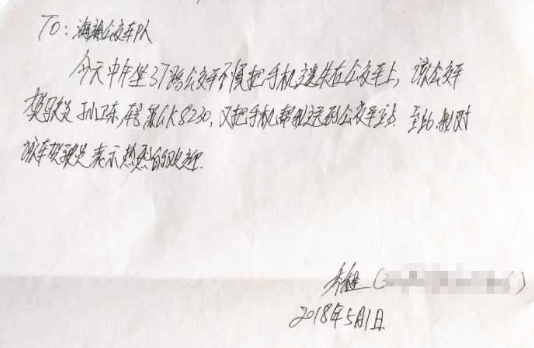 TO：海瑞公交车队
今天中午坐37路公交车不慎把手机遗失在公交车上，该公交车
驾驶员孙卫东，车号黑LK8230，又把手机帮我送到公交车站 至此我对
该车驾驶员表示热烈的欢迎.
李健(
2018年5月1日